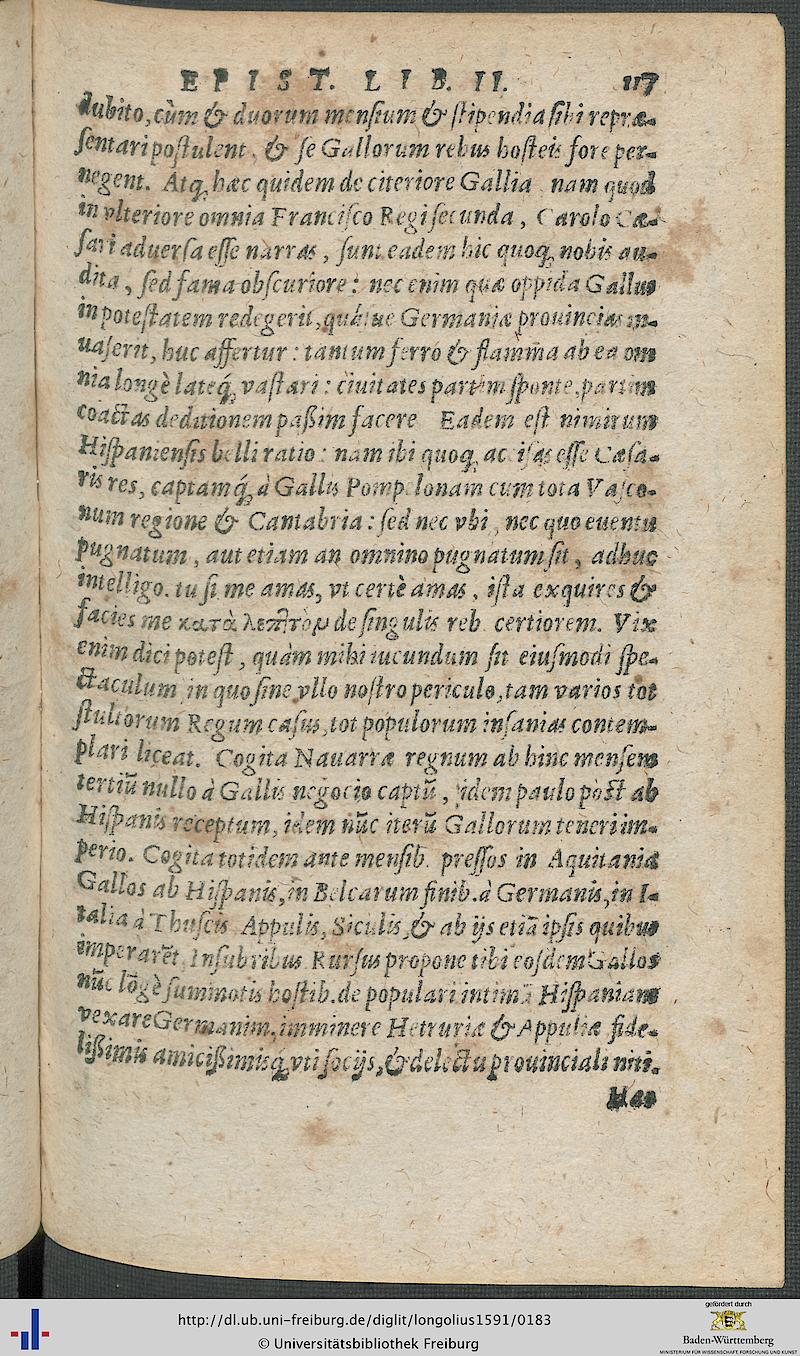 EPIST. LIB. II. 117
dubito, cùm & duorum mensium & stipendia sibi repræ-
sentari postulent, & se Gallorum rebus hosteis fore per-
negent. Atq; hæc quidem de citeriore Gallia nam quod
in vlteriore omnia Francisco Regi secunda, Carolo Cæ-
sari aduersa esse narras, sunt eadem hic quoq; nobis au-
dita, sed fama obscuriore: nec enim quæ oppida Gallus
in potestatem redegerit, quásue Germaniæ prouincias in-
uaserit, huc affertur: tantum ferro & flamma ab eo om
nia longè lateq́; vastari: ciuitates partim sponte, partim
coactas deditionem paßim facere Eadem est nimirum
Hispaniensis belli ratio: nam ibi quoq; accisas esse Cæsa-
ris res, captamq́; à Gallis Pompelonam cum tota Vasco-
num regione & Cantabria: sed nec vbi, nec quo euentu
pugnatum, aut etiam an omnino pugnatum sit, adhuc
intelligo. tu si me amas, vt certè amas, ista exquires &
facies me κατὰ λεπτὸμ de singulis reb. certiorem. Vix
enim dici potest, quàm mihi iucundum sit eiusmodi spe-
ctaculum in quo sine vllo nostro periculo, tam varios tot
stultorum Regum casus, tot populorum insanias contem-
plari liceat. Cogita Nauarræ regnum ab hinc mensem
tertiũ nullo à Gallis negocio captũ, idem paulo pòst ab
Hispanis receptum, idem nũc iterũ Gallorum teneri im-
perio. Cogita totidem ante mensib. pressos in Aquitania
Gallos ab Hispanis, in Belcarum finib. à Germanis, in I-
talia à Thuscis Appulis, Siculis, & ab ijs etiã ipsis quibus
imperarẽt, Insubribus Rursus propone tibi eosdem Gallos
nũc lõgè summotis hostib. de populari intimã Hispaniam
vexare Germanim, imminere Hetruriæ & Appuliæ fide-
lißimis amicißimisq́; vti socijs, & delectu prouinciali niti.
Hæc
http://dl.ub.uni-freiburg.de/diglit/longolius1591/0183
© Universitätsbibliothek Freiburg
gefördert durch
Baden-Württemberg
MINISTERIUM FÜR WISSENSCHAFT, FORSCHUNG UND KUNST